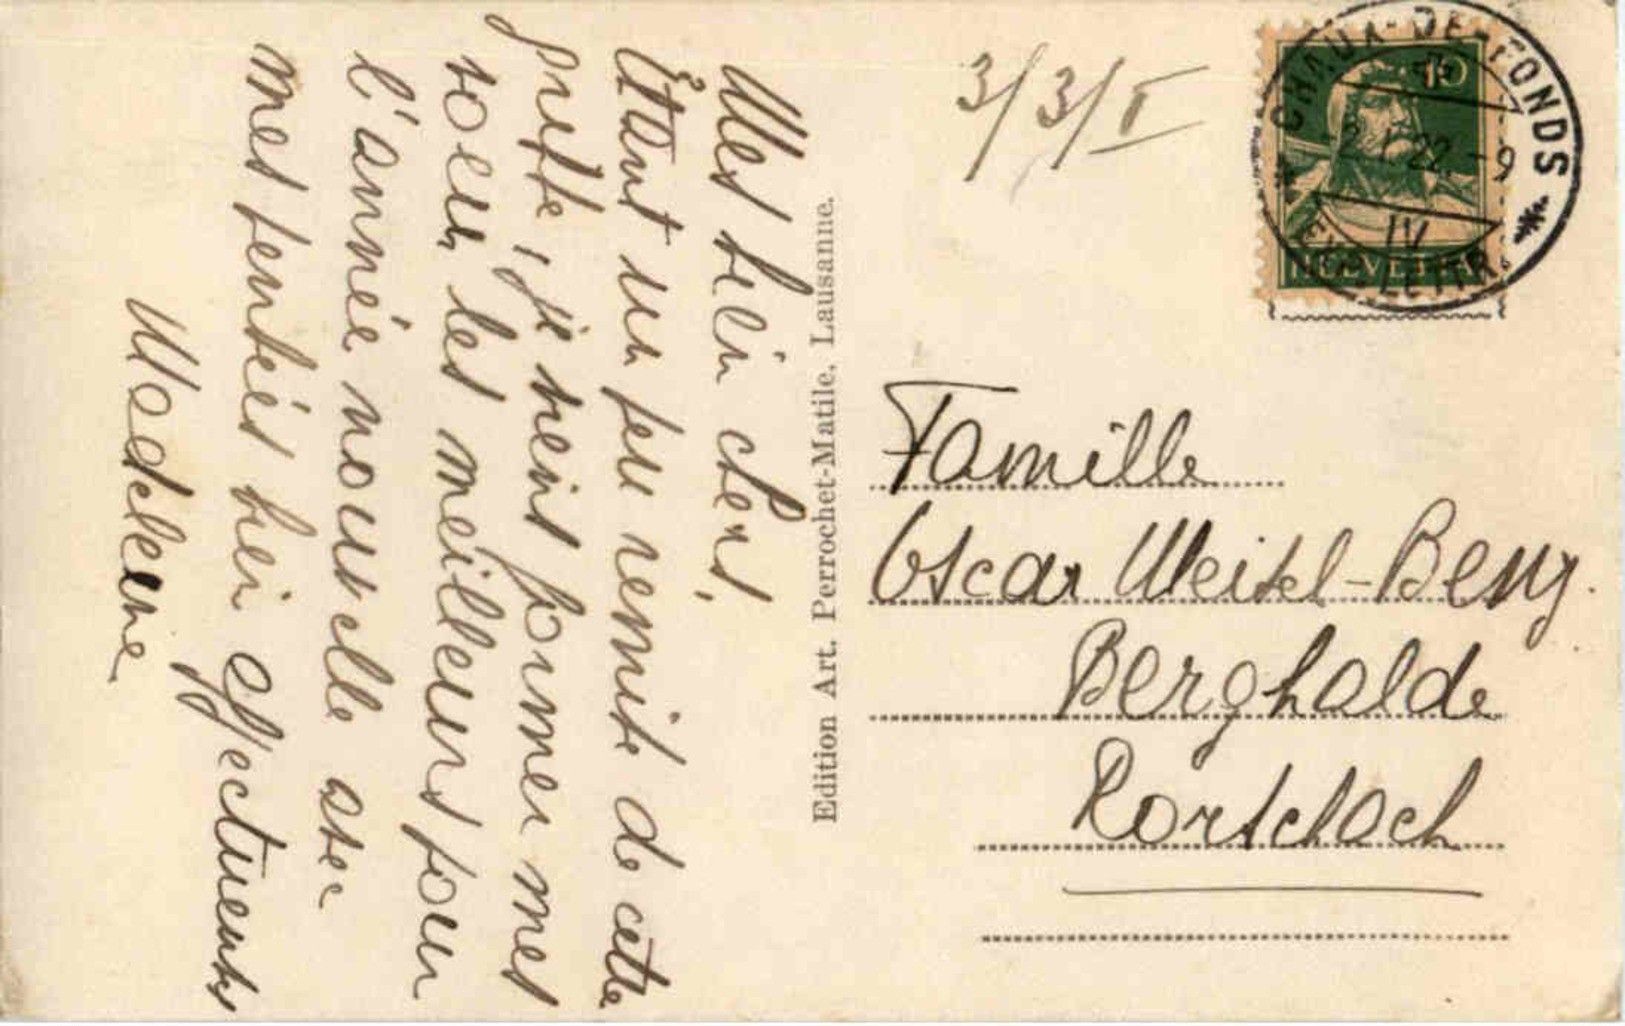 Mes bien chers,
Étant un peu remise de cette
grippe, je viens former mes
voeux les meilleurs pour
l'année nouvelle avec
mes pensées bien affectueuses
Madeleine
Edition Art. Perrochet-Matile, Lausanne.
3/3/I
LA CHAUX-DE-FONDS
22 - 9
IV
LETTR.
10
HELVETIA
Famille
Oscar Weisel-Benz.
Berghalde
Rorschach